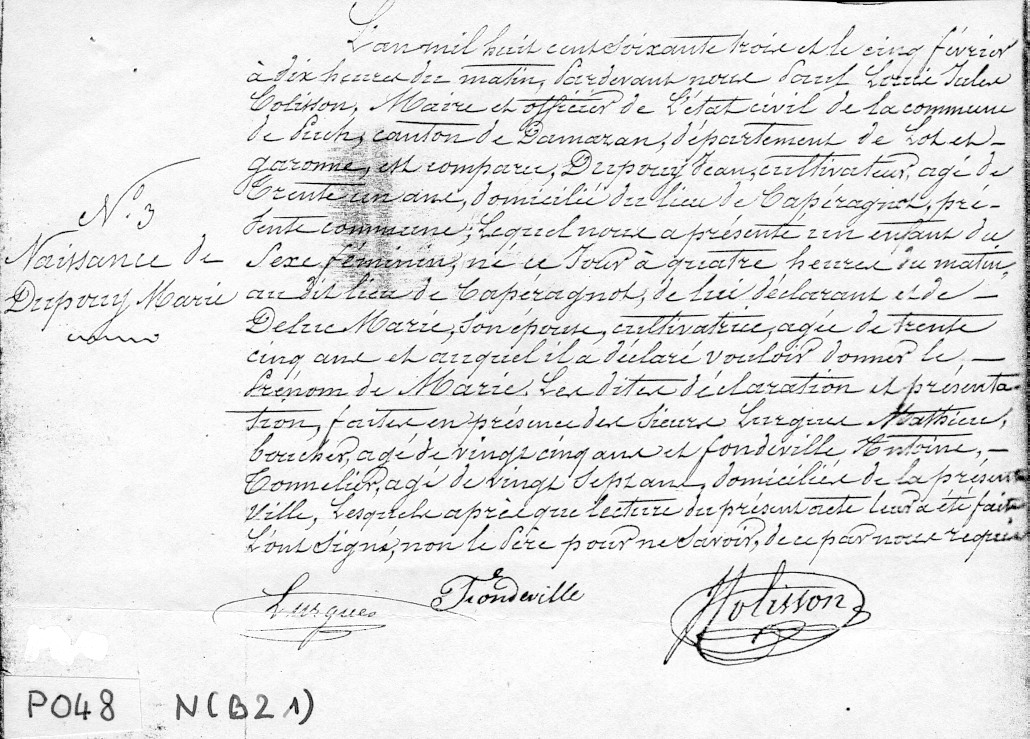 L'an mil huit cent soixante trois et le cinq février
à dix heures du matin, pardevant nous Paul Louis Jules
Colisson, Maire et officier de l'état civil de la commune
de Puch, canton de Damazan, département de Lot et-
garonne, est comparu, Dupouy Jean, cultivateur, agé de
Trente un ans, domicilié du lieu de Capéragnot, pré-
sente commune; Lequel nous a présenté un enfant du
Sexe féminin, né ce Jour à quatre heures du matin,
au dit lieu de Capéragnot, de lui déclarant et de -
Deluc Marie, son épouse, cultivatrice, agée de trente
cinq ans et auquel il a déclaré vouloir donner le -
Prénom de Marie. Les dites déclaration et présenta-
tion, faites en présence des sieurs Lurgues Mathieu,
boucher, agé de vingt cinq ans et fondeville Antoine, -
Tonnelier, agé de vingt Sept ans, domiciliés de la présente
Ville, Lesquels après que lecture du présent acte leur a été faite
L'ont Signé, non le Père pour ne Savoir, de ce par nous requis
N.º 3
Naissance de
Dupouy Marie
Lurgues Fondeville Colisson
P048 N(B21)